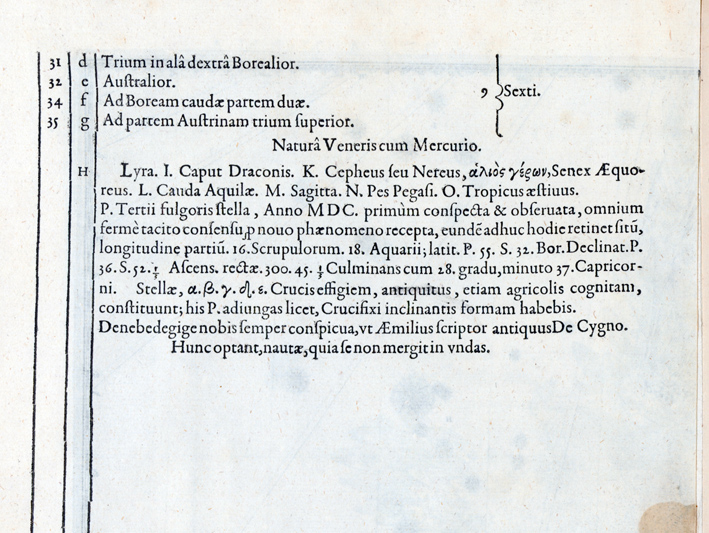 31 d Trium in alâ dextrâ Borealior.
32 e Auſtralior.
34 f Ad Boream caudæ partem duæ. 9 Sexti.
35 g Ad partem Auſtrinam trium ſuperior.
Naturâ Veneris cum Mercurio.
H Lyra. I. Caput Draconis. K. Cepheus ſeu Nereus, ἁλιὸς γέρων, Senex Æquo-
reus. L. Cauda Aquilæ. M. Sagitta. N. Pes Pegaſi. O. Tropicus æſtiuus.
P. Tertii fulgoris ſtella, Anno MDC. primùm conſpecta & obſeruata, omnium
fermè tacito conſenſu, p nouo phænomeno recepta, eundē adhuc hodie retinet ſitū,
longitudine partiū. 16. Scrupulorum. 18. Aquarii; latit. P. 55. S. 32. Bor. Declinat. P.
36. S. 52. Aſcens. rectæ. 300. 45. Culminans cum 28. gradu, minuto 37. Capricor-
ni. Stellæ, α. β. γ. δ. ε. Crucis effigiem, antiquitus, etiam agricolis cognitam,
conſtituunt; his P. adiungas licet, Crucifixi inclinantis formam habebis.
Denebedegige nobis ſemper conſpicua, vt Æmilius ſcriptor antiquus De Cygno.
Hunc optant, nautæ, quia ſe non mergit in vndas.